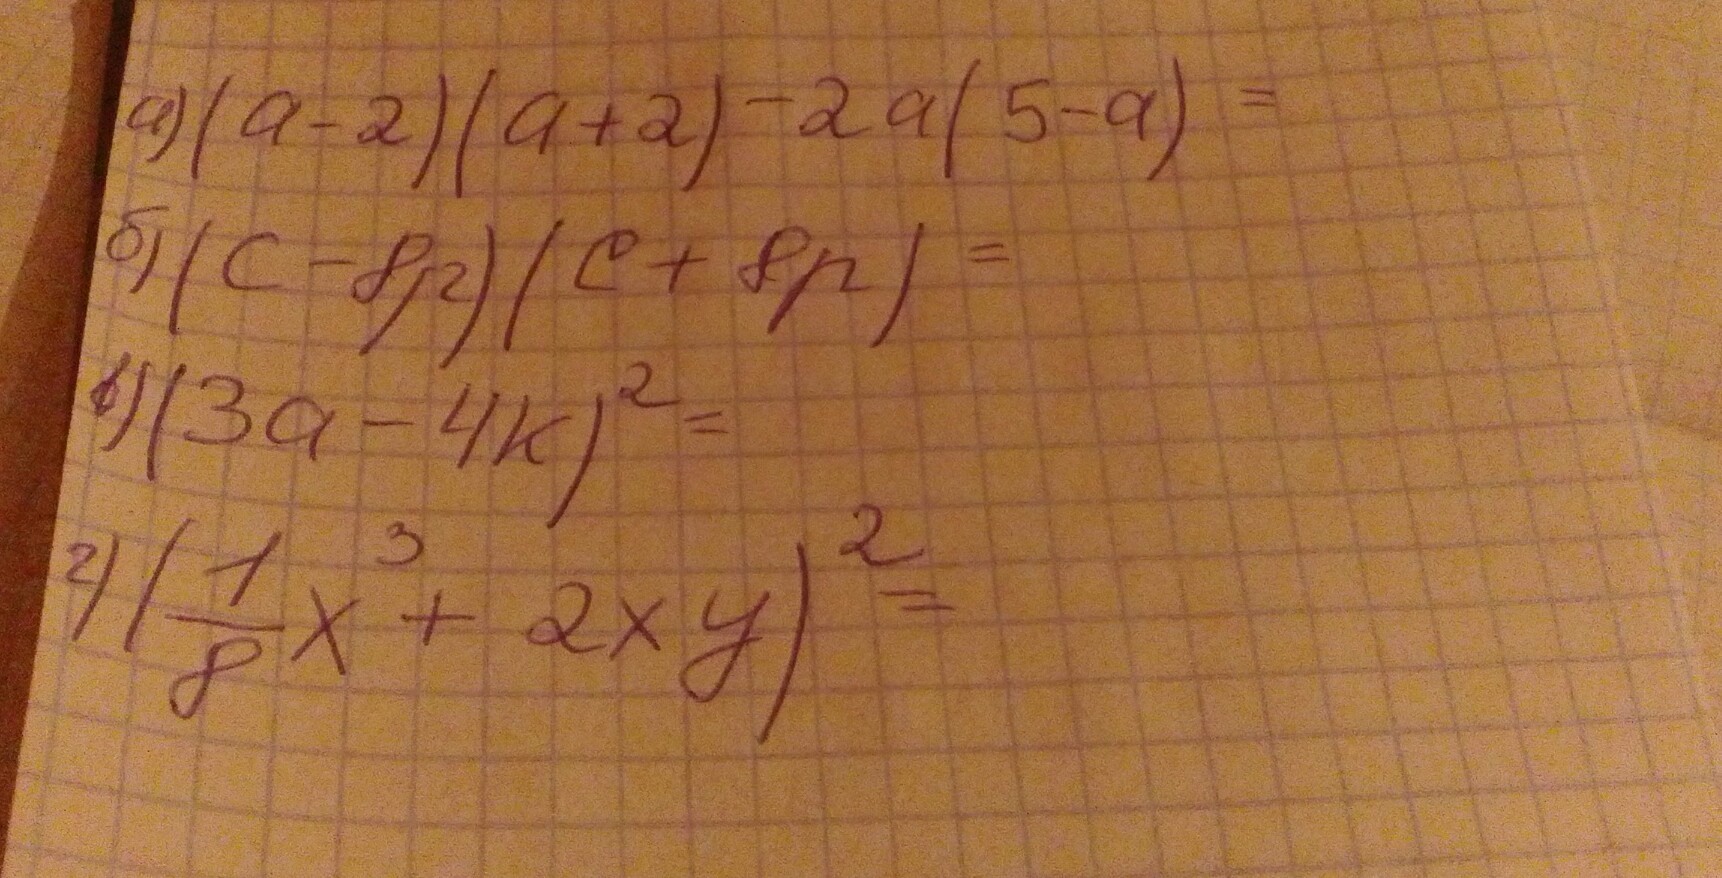 а) (a-2)(a+2)-2a(5-a)=
б) (c-8p)(c+8p)=
в) (3a-4k)²=
г) (1/8x³+2xy)²=